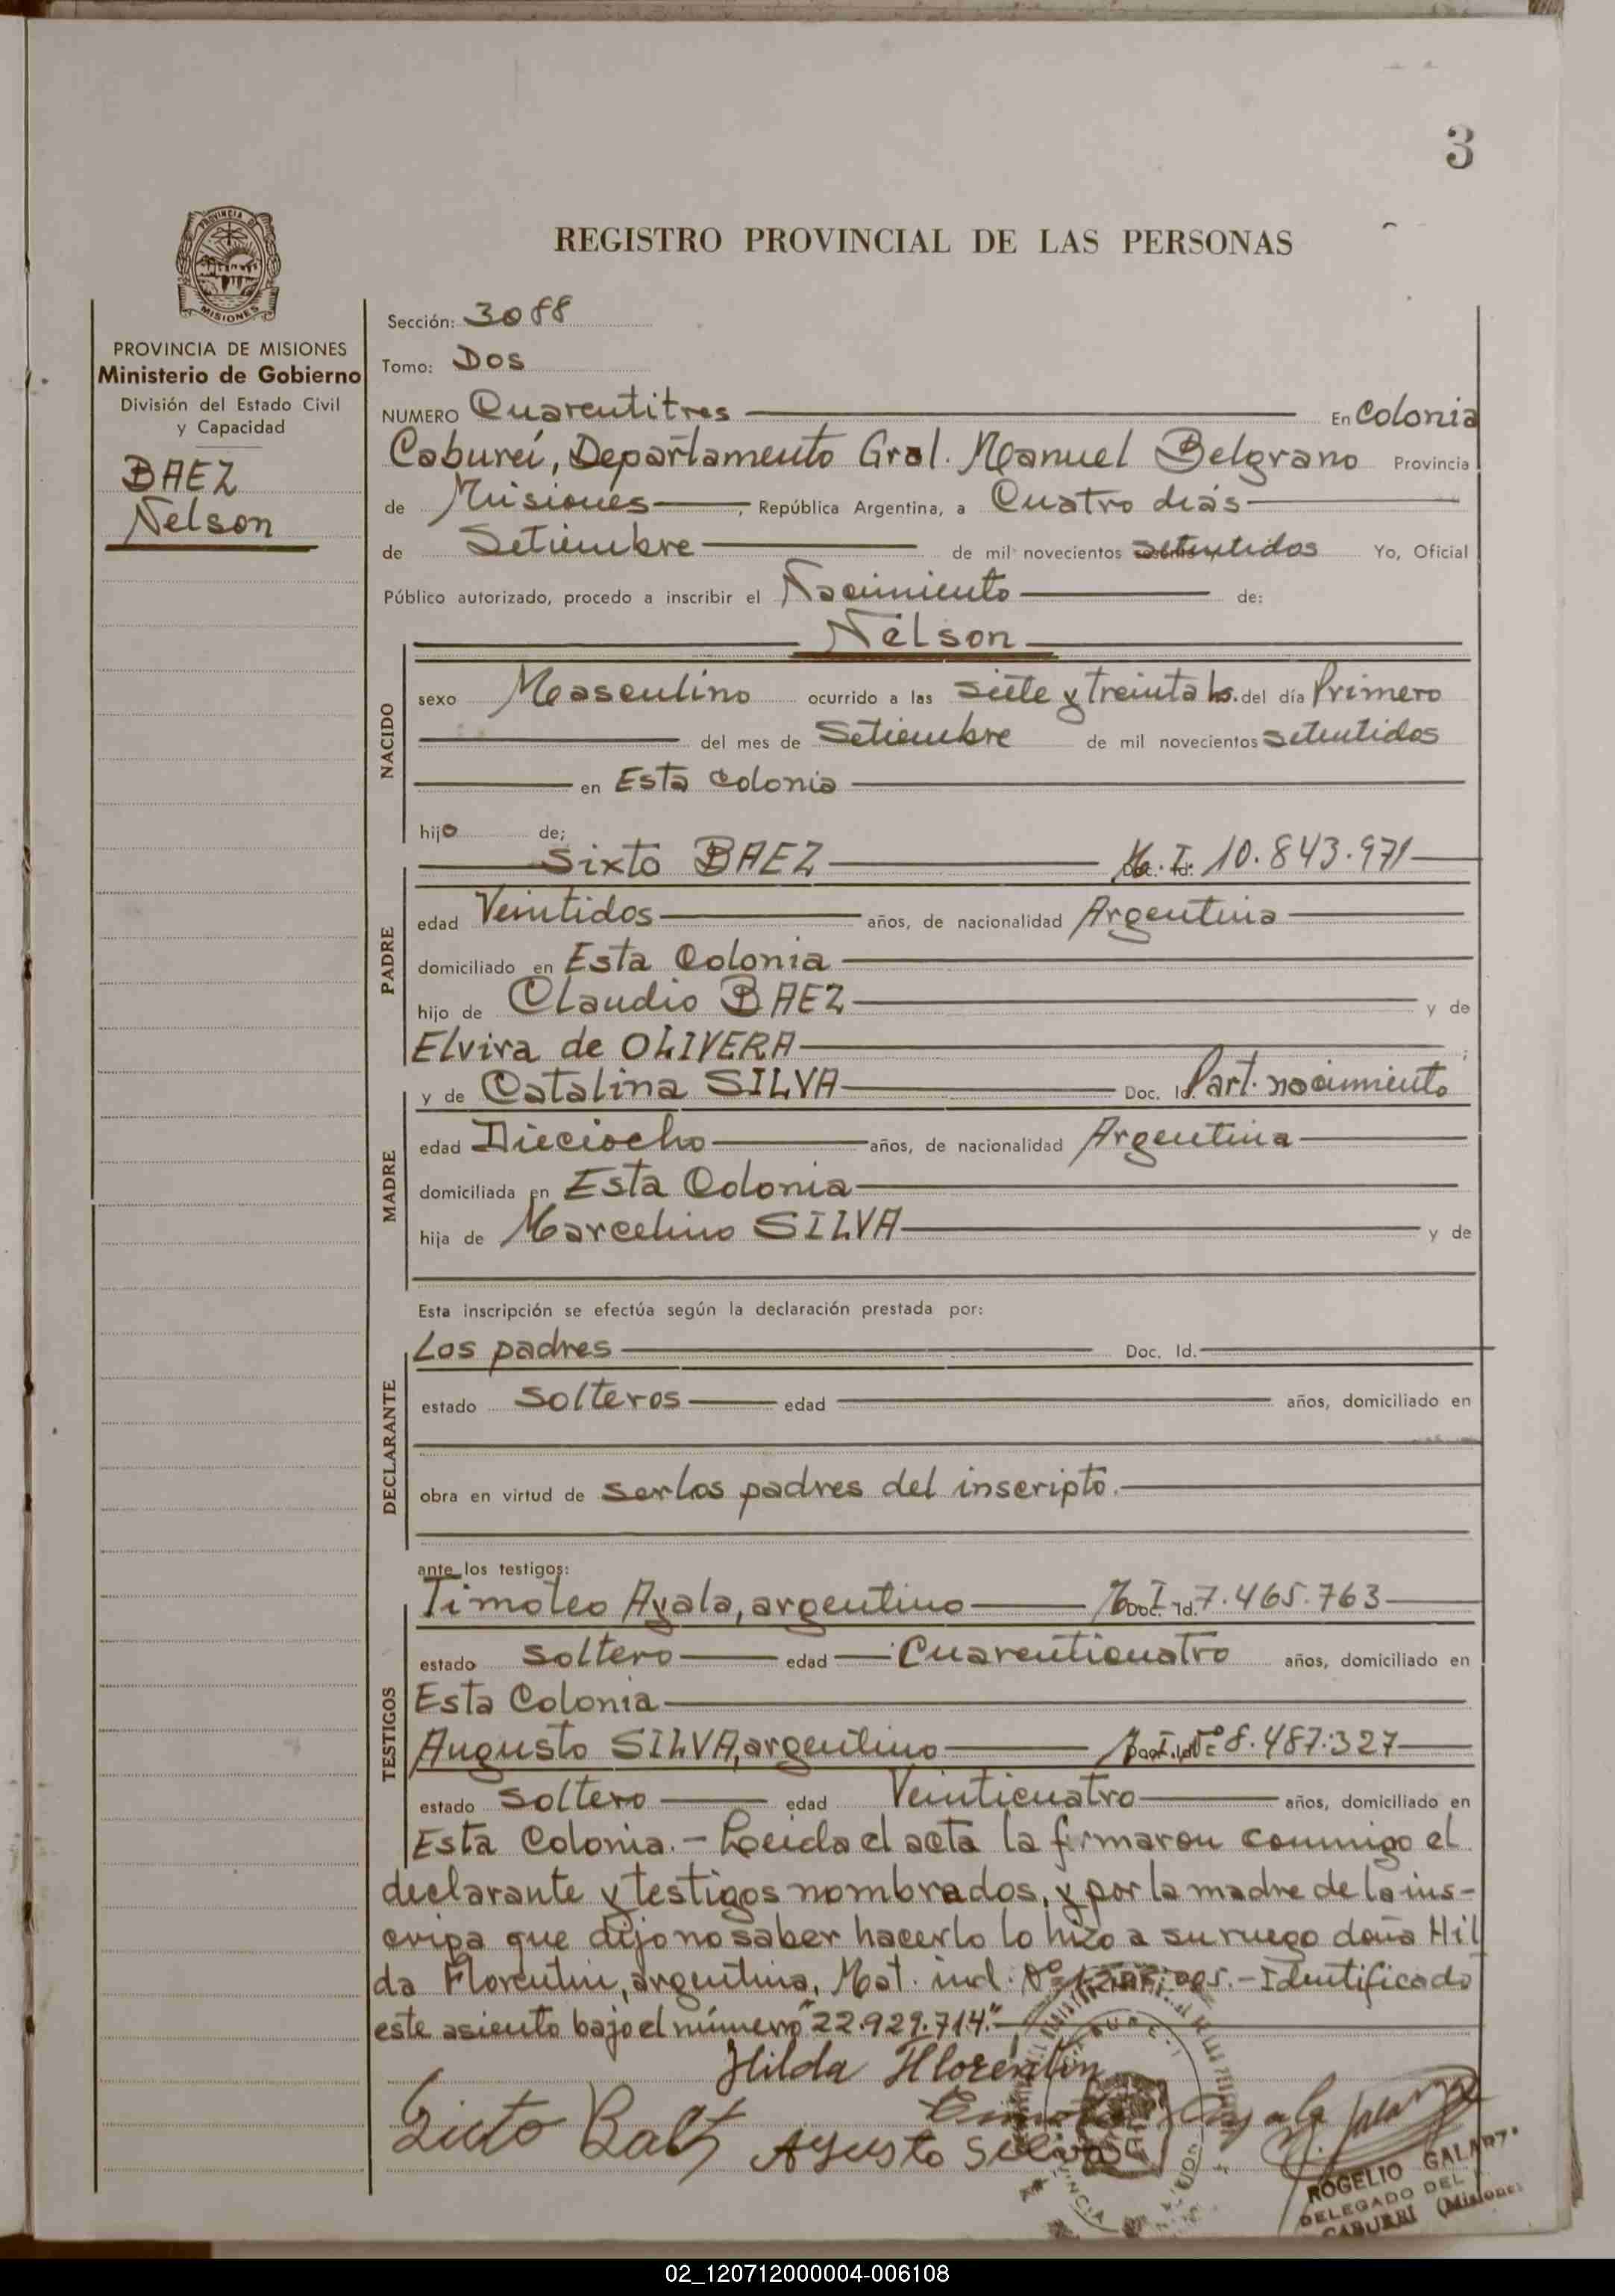 3
REGISTRO PROVINCIAL DE LAS PERSONAS
PROVINCIA DE
MISIONES
PROVINCIA DE MISIONES
Ministerio de Gobierno
División del Estado Civil
y Capacidad
BAEZ
Nelson
Sección: 3088
Tomo: Dos
NUMERO Cuarentitres En Colonia
Caburei, Departamento Gral. Manuel Belgrano Provincia
de Misiones, República Argentina, a Cuatro días
de Setiembre de mil novecientos setentidos Yo, Oficial
Público autorizado, procedo a inscribir el Nacimiento de:
Nelson
NACIDO
sexo Masculino ocurrido a las siete y treinta hs. del día Primero
del mes de Setiembre de mil novecientos setentidos
en Esta Colonia
hijo de;
Sixto BAEZ M. I. 10.843.971
PADRE
edad Veintidos años, de nacionalidad Argentina
domiciliado en Esta Colonia
hijo de Claudio BAEZ y de
Elvira de OLIVERA ;
y de Catalina SILVA Doc. Id. Part. nacimiento
MADRE
edad Dieciocho años, de nacionalidad Argentina
domiciliada en Esta Colonia
hija de Marcelino SILVA y de
Esta inscripción se efectúa según la declaración prestada por:
Los padres Doc. Id.
DECLARANTE
estado Solteros edad años, domiciliado en
obra en virtud de ser los padres del inscripto.
ante los testigos:
Timoteo Ayala, argentino M. I. Doc. Id. 7.465.763
TESTIGOS
estado Soltero edad Cuarenticuatro años, domiciliado en
Esta Colonia
Augusto SILVA, argentino 8.487.327
estado Soltero edad Veinticuatro años, domiciliado en
Esta Colonia.- Leida el acta la firmaron conmigo el
declarante y testigos nombrados, y por la madre de la ins-
cripa que dijo no saber hacerlo lo hizo a su ruego doña Hil
da Florentin, argentina, Mat. ind. Nº .- Identificado
este asiento bajo el número "22.929.714."
Hilda Florentin
Agusto Silva
Ayala
ROGELIO GALARZA
DELEGADO DEL
CABUREI (Misiones
02_120712000004-006108